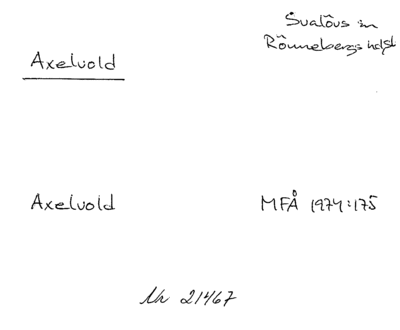 Svalövs sn
Rönnebergs hd
Axelvold
Axelvold
MFÅ 1974:175
21467